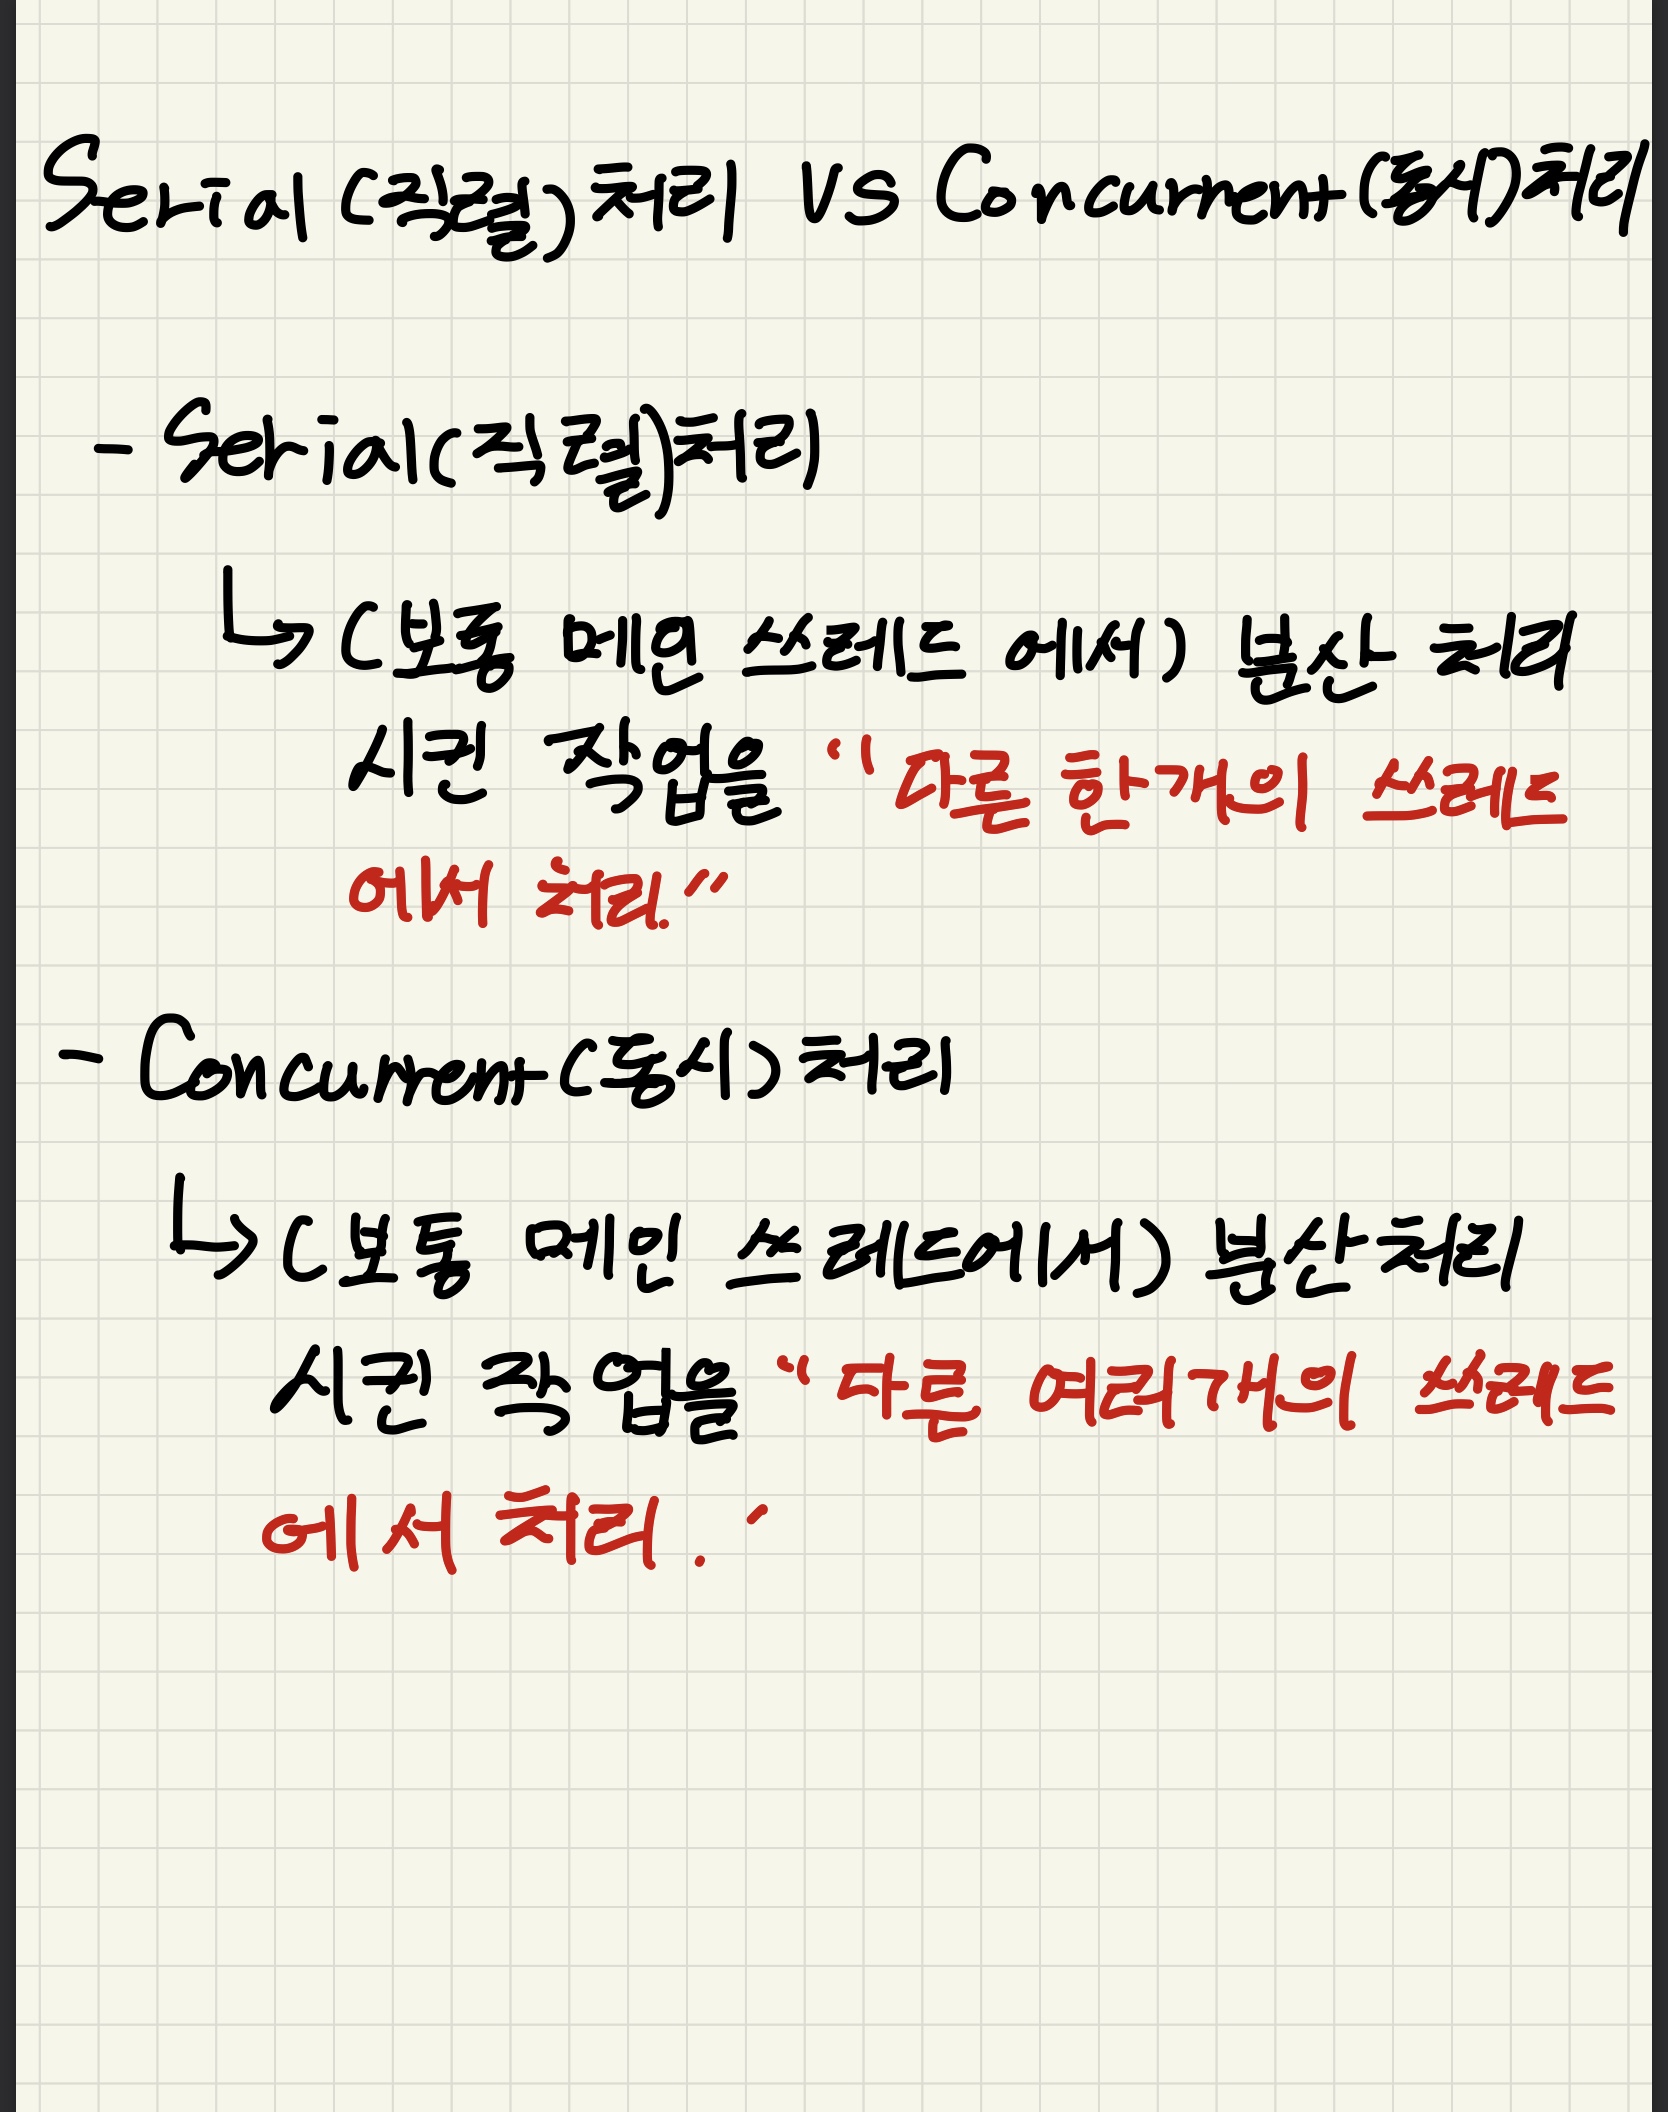 Serial (직렬)처리 VS Concurrent(동시)처리
- Serial(직렬)처리
↳ (보통 메인 쓰레드 에서) 분산 처리
시킨 작업을 "다른 한개의 쓰레드
에서 처리."
- Concurrent(동시)처리
↳ (보통 메인 쓰레드에서) 분산처리
시킨 작업을 "다른 여러개의 쓰레드
에서 처리.'